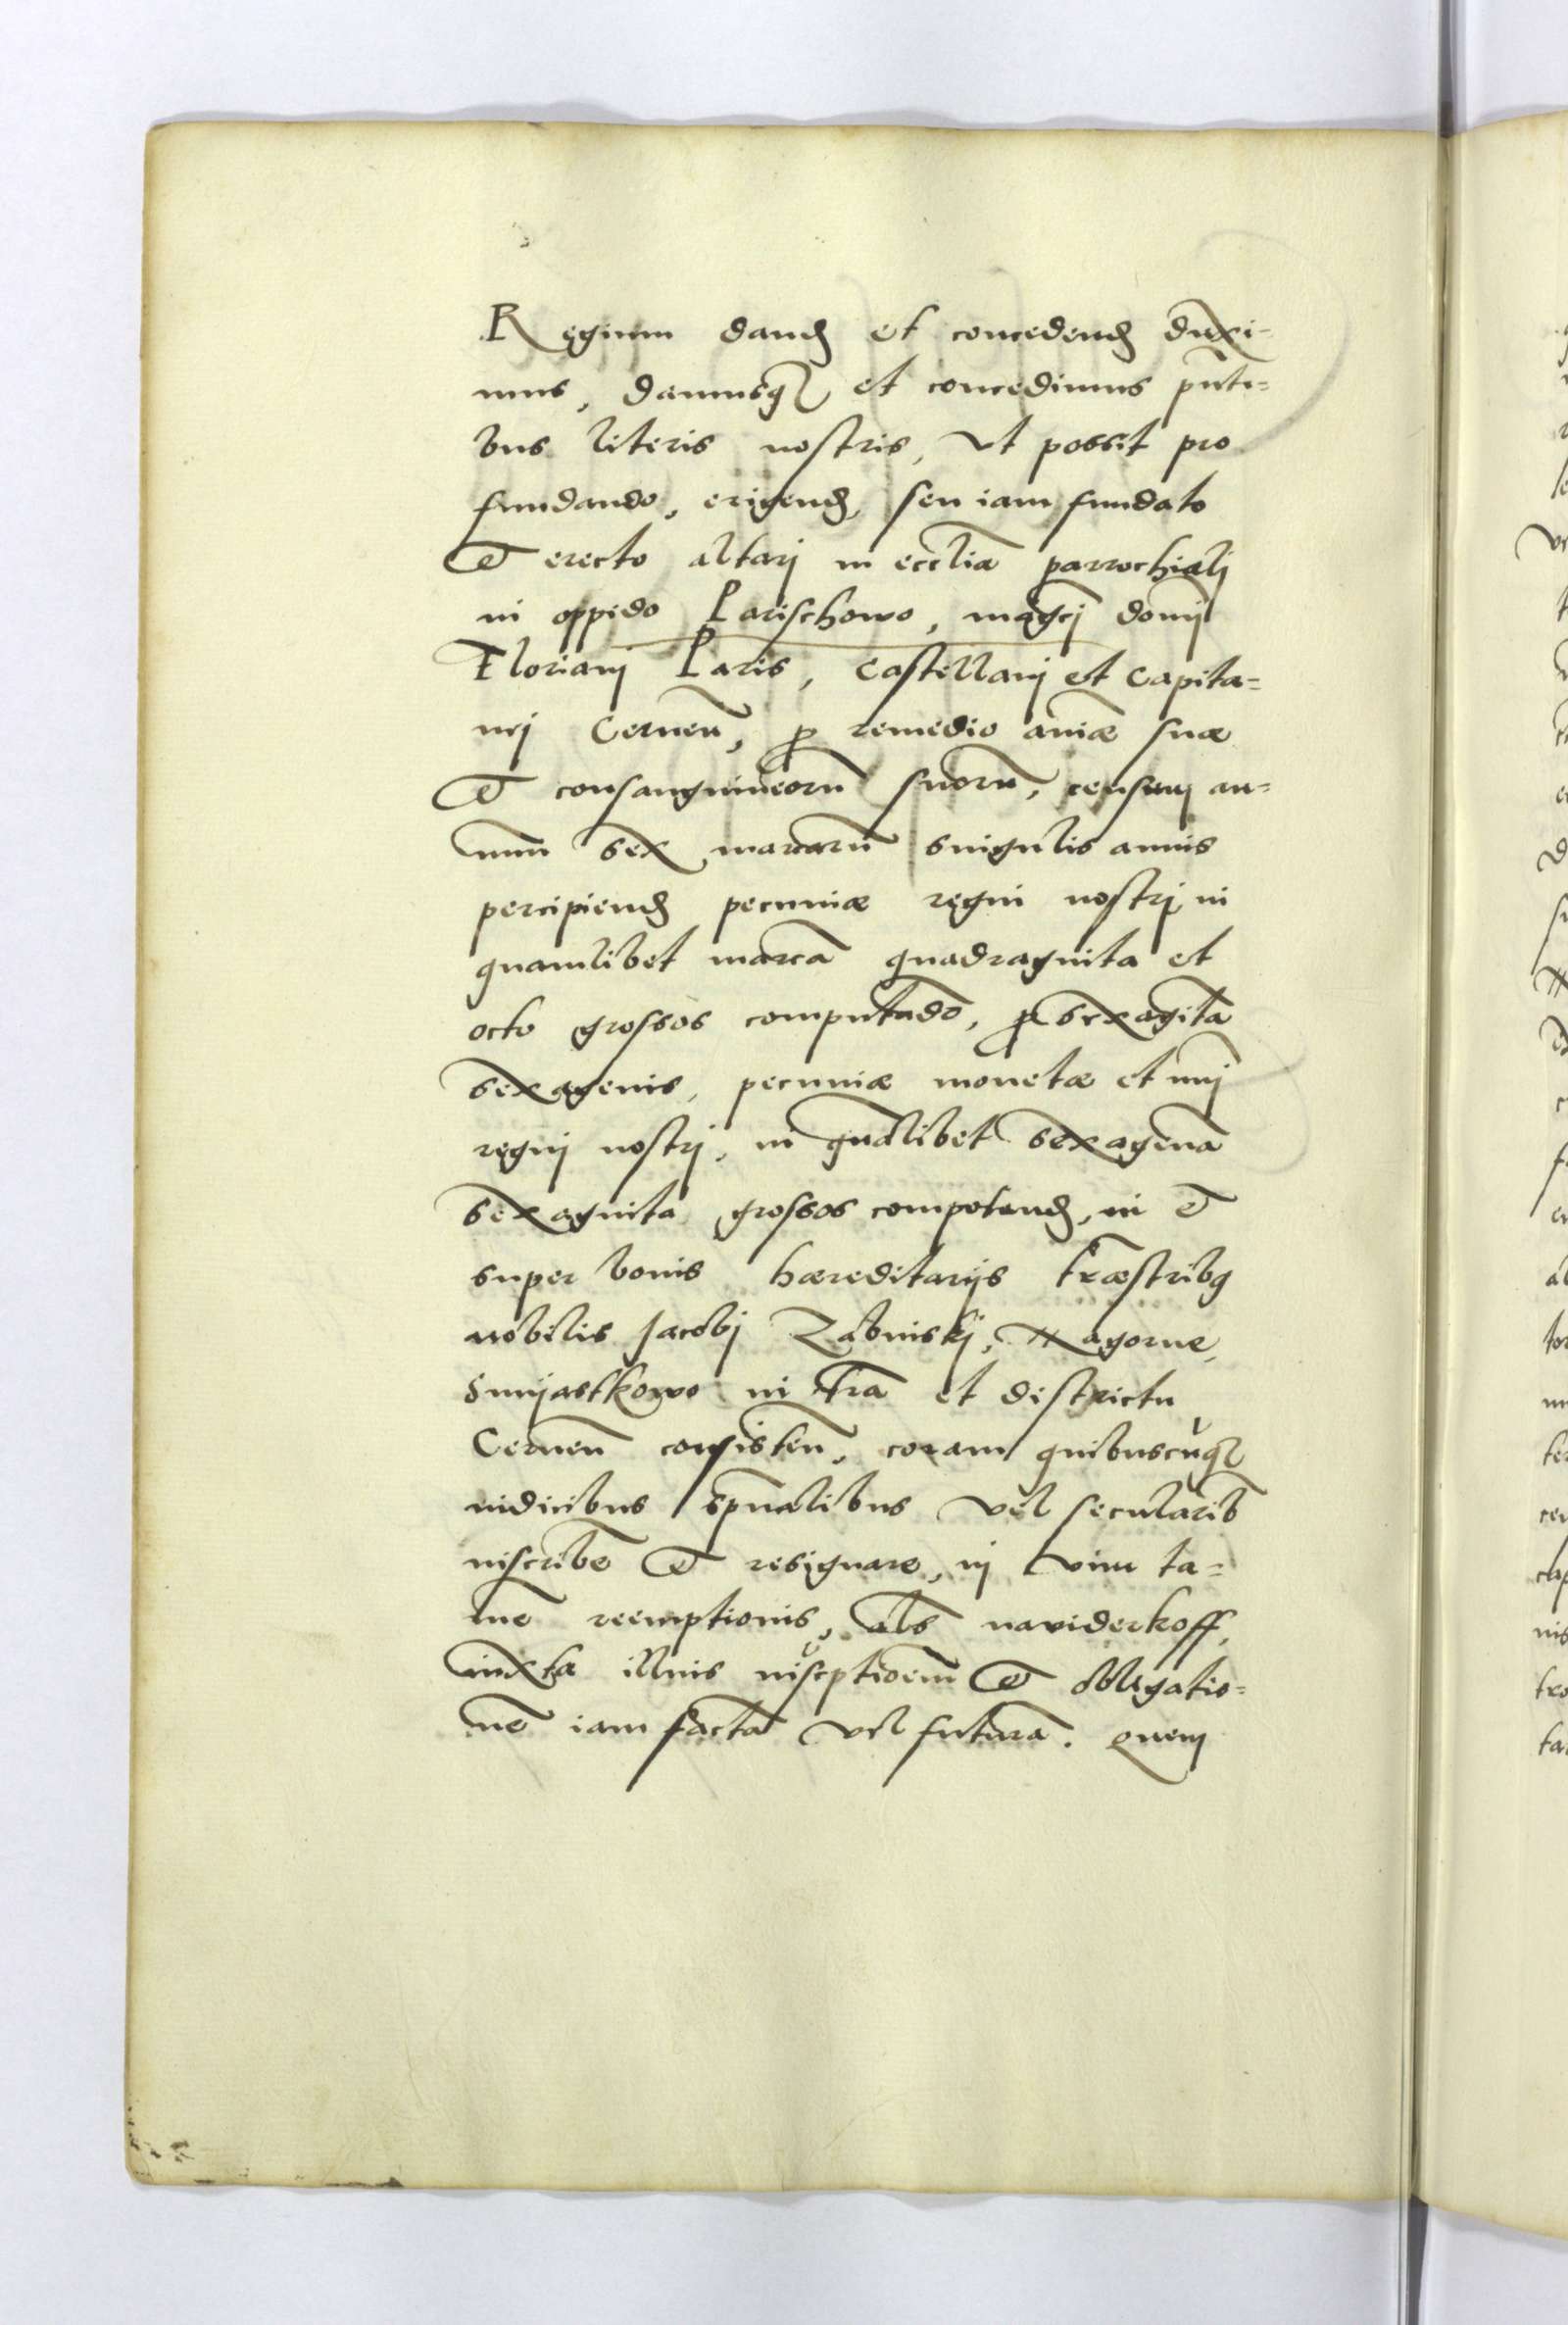 Regium dand et concedend duxi=
mus, damusq et concedimus pnti=
bus literis nostris, ut possit pro
fundando, erigend, seu iam fundato
et erecto altari in ecclia parrochialj
in oppido Parischowo, magcj domj
Florianj Paris, Castellanj et Capita=
nej Cernen, p remedio aniæ suæ
et consanguineoru suoru, censum an=
nuu sex marcaru singulis annis
percipiend pecuniæ regni nostrj in
quamlibet marca quadraginta et
octo grossos computado, p sexagita
sexagenis, pecuniæ monetæ et nuj
regnj nostrj, in qualibet sexagena
sexaginta grossos computand, in et
super bonis hæreditarijs træstribq
nobilis Jacobj Zabinskj,
in tra et districtu
Cernen consisten, coram quibuscuq
iudicibus spualibus vel secularib
inscribe et resignare, in vim ta=
me reemptionis, als naviderkoff,
iuxta illius inscptioem et obligatio=
ne iam facta vel futura. quem